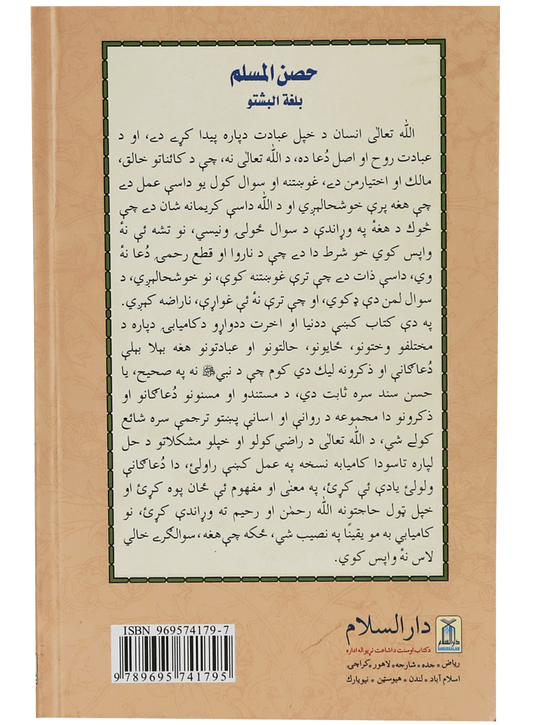 حصن المسلم
بلغة البشتو
الله تعالٰی انسان د خپل عبادت دپاره پیدا کړے دے، او د
عبادت روح او اصل دُعا ده، د الله تعالٰی نه، چې د کائناتو خالق،
مالك او اختیارمن دے، غوښتنه او سوال کول یو داسې عمل دے
چې هغه پرې خوشحالېږي او د الله داسې کریمانه شان دے چې
څوك د هغهٔ په وړاندې د سوال څولۍ ونیسي، نو تشه ئې نهٔ
واپس کوي خو شرط دا دے چې د ناروا او قطع رحمۍ دُعا نهٔ
وي، داسې ذات دے چې ترې غوښتنه کوې، نو خوشحالېږي، د
سوال لمن دې ډکوي، او چې ترې نهٔ ئې غواړې، ناراضه کېږي.
په دې کتاب کښې ددنیا او اخرت ددواړو دکامیابۍ دپاره د
مختلفو وختونو، ځایونو، حالتونو او عبادتونو هغه بېلا بېلې
دُعاګانې او ذکرونه لیك دي کوم چې د نبيﷺ نه په صحیح، یا
حسن سند سره ثابت دي، د مستندو او مسنونو دُعاګانو او
ذکرونو دا مجموعه د روانې او اسانې پښتو ترجمې سره شائع
کولے شي، د الله تعالٰی د راضي کولو او خپلو مشکلاتو د حل
لپاره تاسودا کامیابه نسخه په عمل کښې راولئ، دا دُعاګانې
ولولئ یادې ئې کړئ، په معنٰی او مفهوم ئې ځان پوه کړئ او
خپل ټول حاجتونه الله رحمٰن او رحیم ته وړاندې کړئ، نو
کامیابي به مو یقینًا په نصیب شي، ځکه چې هغه، سوالګرے خالي
لاس نهٔ واپس کوي.
ISBN 969574179-7
9 789695 741795
دارالسلام
دکتاب اوسنت داشاعت نړیواله اداره
ریاض • جده • شارجه • لاهور • کراچی
اسلام آباد • لندن • هیوستین • نیویارك
دارالسلام
DARUSSALAM